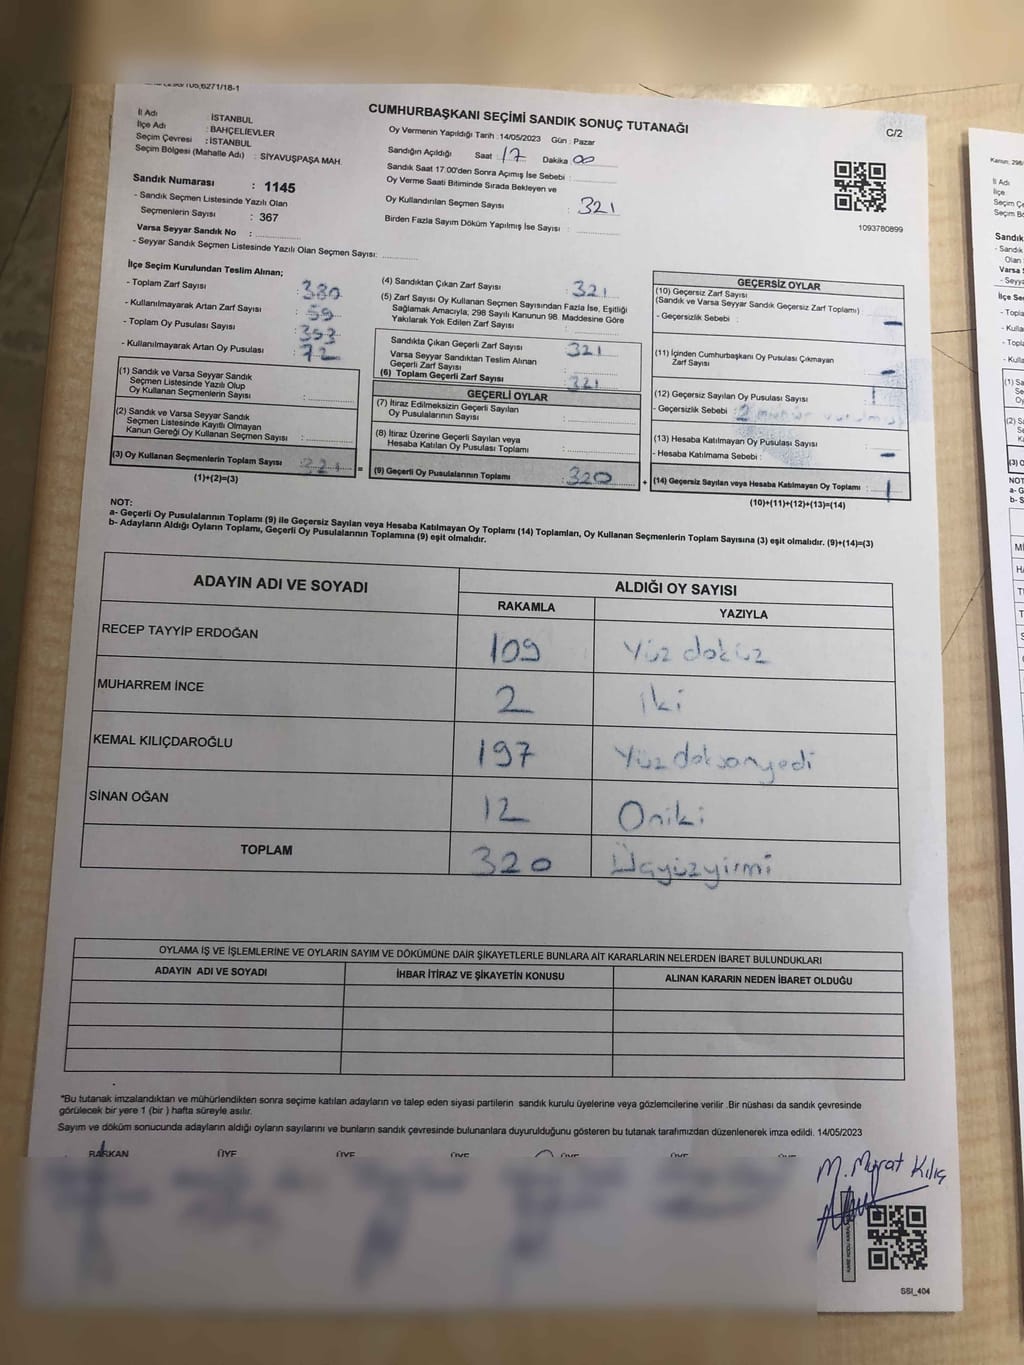 CUMHURBAŞKANI SEÇİMİ SANDIK SONUÇ TUTANAĞI
C/2
İl Adı : İSTANBUL
İlçe Adı : BAHÇELİEVLER
Seçim Çevresi : İSTANBUL
Seçim Bölgesi (Mahalle Adı) : SİYAVUŞPAŞA MAH.
Sandık Numarası : 1145
- Sandık Seçmen Listesinde Yazılı Olan
Seçmenlerin Sayısı : 367
Varsa Seyyar Sandık No :
- Seyyar Sandık Seçmen Listesinde Yazılı Olan Seçmen Sayısı:
Oy Vermenin Yapıldığı Tarih : 14/05/2023 Gün : Pazar
Sandığın Açıldığı Saat 17 Dakika 00
Sandık Saat 17:00'den Sonra Açımış İse Sebebi :
Oy Verme Saati Bitiminde Sırada Bekleyen ve
Oy Kullandırılan Seçmen Sayısı : 321
Birden Fazla Sayım Döküm Yapılmış İse Sayısı :
1093780899
İlçe Seçim Kurulundan Teslim Alınan;
- Toplam Zarf Sayısı : 380
- Kullanılmayarak Artan Zarf Sayısı : 59
- Toplam Oy Pusulası Sayısı : 393
- Kullanılmayarak Artan Oy Pusulası : 72
(1) Sandık ve Varsa Seyyar Sandık
Seçmen Listesinde Yazılı Olup
Oy Kullanan Seçmenlerin Sayısı :
(2) Sandık ve Varsa Seyyar Sandık
Seçmen Listesinde Kayıtlı Olmayan
Kanun Gereği Oy Kullanan Seçmen Sayısı :
(3) Oy Kullanan Seçmenlerin Toplam Sayısı : 321
(1)+(2)=(3)
(4) Sandıktan Çıkan Zarf Sayısı : 321
(5) Zarf Sayısı Oy Kullanan Seçmen Sayısından Fazla İse, Eşitliği
Sağlamak Amacıyla; 298 Sayılı Kanunun 98. Maddesine Göre
Yakılarak Yok Edilen Zarf Sayısı :
Sandıkta Çıkan Geçerli Zarf Sayısı 321
Varsa Seyyar Sandıktan Teslim Alınan
Geçerli Zarf Sayısı :
(6) Toplam Geçerli Zarf Sayısı : 321
GEÇERLİ OYLAR
(7) İtiraz Edilmeksizin Geçerli Sayılan
Oy Pusulalarının Sayısı :
(8) İtiraz Üzerine Geçerli Sayılan veya
Hesaba Katılan Oy Pusulası Toplamı :
(9) Geçerli Oy Pusulalarının Toplamı : 320
GEÇERSİZ OYLAR
(10) Geçersiz Zarf Sayısı
(Sandık ve Varsa Seyyar Sandık Geçersiz Zarf Toplamı)
- Geçersizlik Sebebi : —
(11) İçinden Cumhurbaşkanı Oy Pusulası Çıkmayan
Zarf Sayısı : —
(12) Geçersiz Sayılan Oy Pusulası Sayısı : 1
- Geçersizlik Sebebi : 2 mühür
(13) Hesaba Katılmayan Oy Pusulası Sayısı
- Hesaba Katılmama Sebebi : —
(14) Geçersiz Sayılan veya Hesaba Katılmayan Oy Toplamı : 1
(10)+(11)+(12)+(13)=(14)
NOT:
a- Geçerli Oy Pusulalarının Toplamı (9) ile Geçersiz Sayılan veya Hesaba Katılmayan Oy Toplamı (14) Toplamları, Oy Kullanan Seçmenlerin Toplam Sayısına (3) eşit olmalıdır. (9)+(14)=(3)
b- Adayların Aldığı Oyların Toplamı, Geçerli Oy Pusulalarının Toplamına (9) eşit olmalıdır.
ADAYIN ADI VE SOYADI ALDIĞI OY SAYISI
RAKAMLA YAZIYLA
RECEP TAYYİP ERDOĞAN 109 Yüz dokuz
MUHARREM İNCE 2 İki
KEMAL KILIÇDAROĞLU 197 Yüz doksanyedi
SİNAN OĞAN 12 Oniki
TOPLAM 320 Üçyüzyirmi
OYLAMA İŞ VE İŞLEMLERİNE VE OYLARIN SAYIM VE DÖKÜMÜNE DAİR ŞİKAYETLERLE BUNLARA AİT KARARLARIN NELERDEN İBARET BULUNDUKLARI
ADAYIN ADI VE SOYADI İHBAR İTİRAZ VE ŞİKAYETİN KONUSU ALINAN KARARIN NEDEN İBARET OLDUĞU
"Bu tutanak imzalandıktan ve mühürlendikten sonra seçime katılan adayların ve talep eden siyasi partilerin sandık kurulu üyelerine veya gözlemcilerine verilir .Bir nüshası da sandık çevresinde
görülecek bir yere 1 (bir ) hafta süreyle asılır.
Sayım ve döküm sonucunda adayların aldığı oyların sayılarını ve bunların sandık çevresinde bulunanlara duyurulduğunu gösteren bu tutanak tarafımızdan düzenlenerek imza edildi. 14/05/2023
BAŞKAN ÜYE ÜYE ÜYE ÜYE ÜYE ÜYE
M. Murat Kılıç
SSI_404